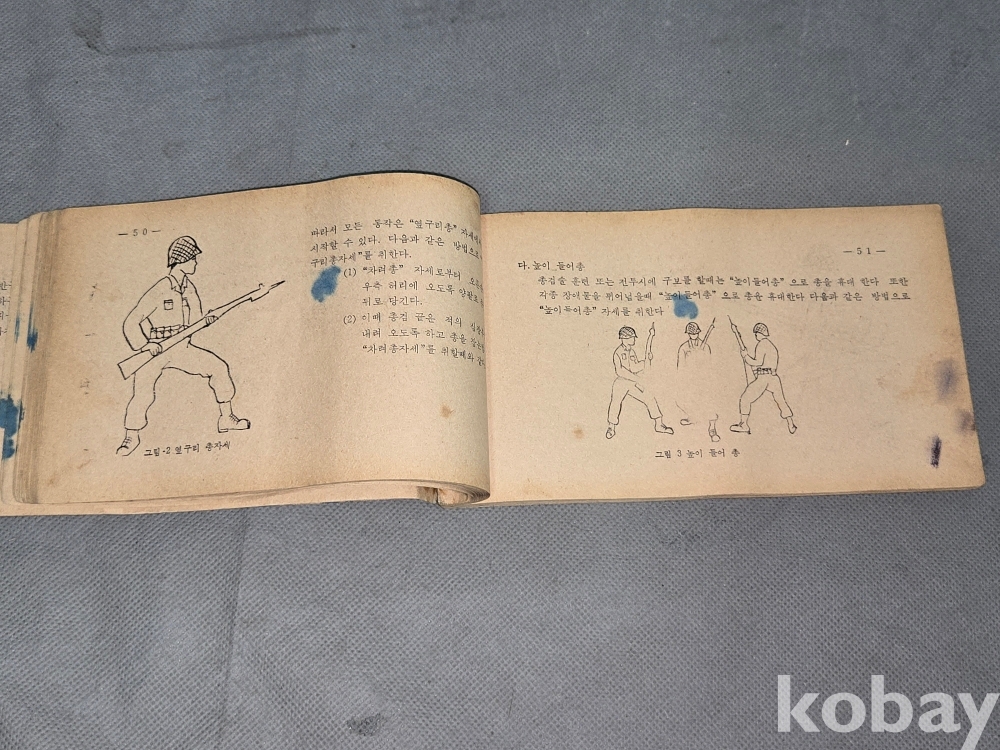 — 50 —
따라서 모든 동작은 "옆구리총"
시작할 수 있다. 다음과 같은 방법으로
구리총자세"를 취한다.
(1) "차려총" 자세로부터
우측 허리에 오도록
뒤로 당긴다.
(2) 이때 총검 끝은 적의
내려 오도록 하고 총을
"차려총자세"를 취할때와
그림-2 옆구리 총자세
— 51 —
다. 높이 들어총
총검술 훈련 또는 전투시에 구보를 할때는 "높이들어총" 으로 총을 휴대 한다 또한
각종 장애물을 뛰어넘을때 "높이들어총" 으로 총을 휴대한다 다음과 같은 방법으로
"높이들어총" 자세를 취한다
그림 3 높이 들어 총
kobay